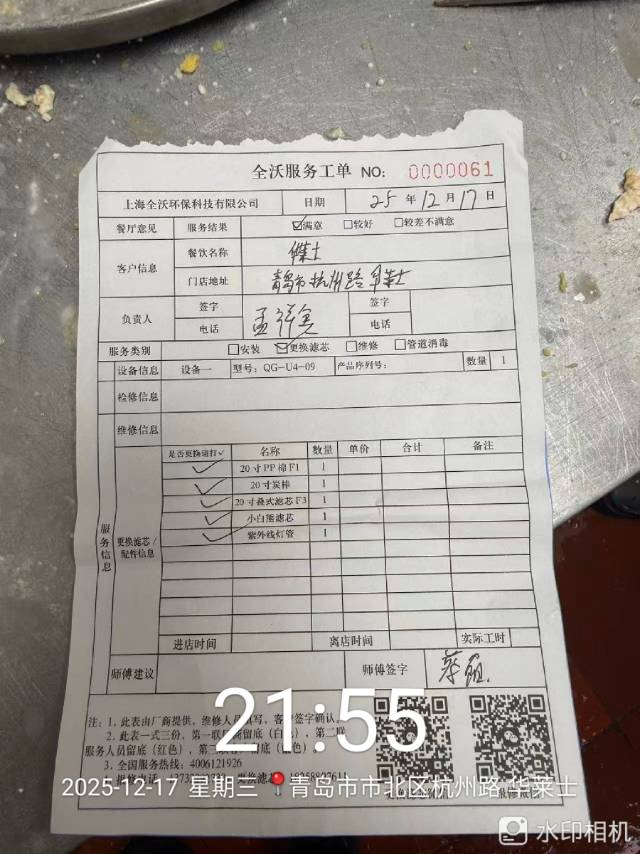 全沃服务工单 NO: 0000061
上海全沃环保科技有限公司 日期 25 年 12 月 17 日
餐厅意见 服务结果 ☑满意 □较好 □较差不满意
客户信息 餐饮名称 华莱士
门店地址 青岛市杭州路华莱士
负责人 签字 签字
电话 电话
服务类别 □安装 ☑更换滤芯 □维修 □管道消毒
设备信息 设备一 型号: QG-U4-09 产品序列号: 数量 1
检修信息
维修信息
服务信息
更换滤芯/配件信息
是否更换请打√ 名称 数量 单价 合计 备注
✓ 20寸PP棉F1 1
✓ 20寸炭棒 1
✓ 20寸叠式滤芯F3 1
✓ 小白熊滤芯 1
✓ 紫外线灯管 1
进店时间 离店时间 实际工时
师傅建议 师傅签字
注: 1、此表由厂商提供, 维修人员填写, 客户签字确认。
2、此表一式三份, 第一联 留底(白色), 第二联
服务人员留底(红色), 第三联 留底
3、全国服务热线: 4006121926
4、报修电话
21:55
2025-12-17 星期三 青岛市市北区杭州路 华莱士
水印相机